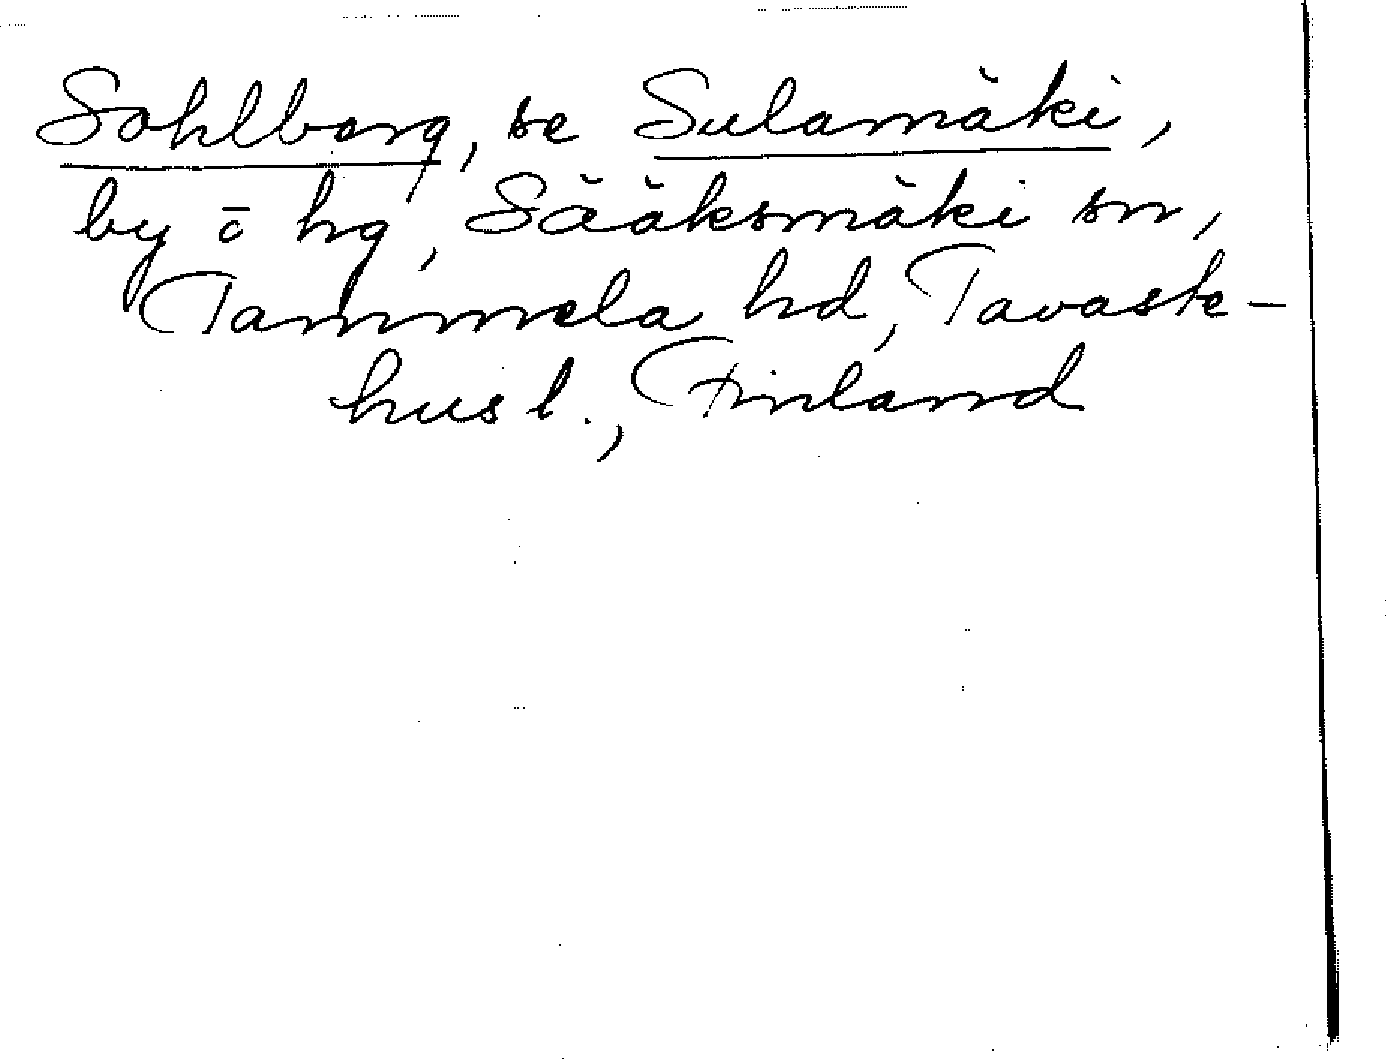 Sohlberg, se Sulamäki,
by o hg, Sääksmäki sn,
Tammela hd, Tavaste-
hus l., Finland